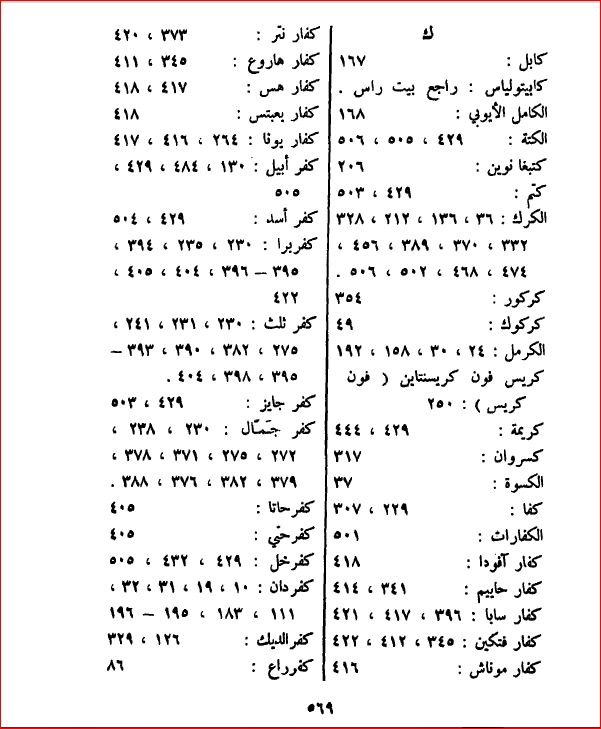 ك
كابل : ١٦٧
كابيتولياس : راجع بيت راس .
الكامل الأيوبي : ١٦٨
الكتة : ٤٢٩ ، ٥٠٥ ، ٥٠٦
كتبغا نوين : ٢٠٦
كتم : ٤٢٩ ، ٥٠٣
الكرك : ٣٦ ، ١٣٦ ، ٢١٢ ، ٣٢٨
٣٣٢ ، ٣٧٠ ، ٣٨٩ ، ٤٥٦ ،
٤٧٤ ، ٤٦٨ ، ٥٠٢ ، ٥٠٦ .
كركور : ٣٥٤
كركوك : ٤٩
الكرمل : ٢٤ ، ٣٠ ، ١٥٨ ، ١٩٢
كريس فون كريسنتاين ( فون
كريس ) : ٢٥٠
كريمة : ٤٢٩ ، ٤٤٤
كسروان : ٣١٧
الكسوة : ٣٧
كفا : ٢٢٩ ، ٣٠٧
الكفارات : ٥٠١
كفار آفودا : ٤١٨
كفار حاييم : ٣٤١ ، ٤١٤
كفار سابا : ٣٩٦ ، ٤١٧ ، ٤٢١
كفار فتكين : ٣٤٥ ، ٤١٢ ، ٤٢٢
كفار موناش : ٤١٦
كفار نتر : ٣٧٣ ، ٤٢٠
كفار هاروع : ٣٤٥ ، ٤١١
كفار هس : ٤١٧ ، ٤١٨
كفار يعبتس : ٤١٨
كفار يوفا : ٢٦٤ ، ٤١٦ ، ٤١٧
كفر أبيل : ١٣٠ ، ٤٨٤ ، ٤٢٩ ،
٥٠٥
كفر أسد : ٤٢٩ ، ٥٠٤
كفربرا : ٢٣٠ ، ٢٣٥ ، ٣٩٤ ،
٣٩٥ – ٣٩٦ ، ٤٠٤ ، ٤٠٥ ،
٤٢٢
كفر ثلث : ٢٣٠ ، ٢٣١ ، ٢٤١ ،
٢٧٥ ، ٣٨٢ ، ٣٩٠ ، ٣٩٣ –
٣٩٥ ، ٣٩٨ ، ٤٠٤ .
كفر جايز : ٤٢٩ ، ٥٠٣
كفر جمّال : ٢٣٠ ، ٢٣٨ ،
٢٧٢ ، ٢٧٥ ، ٣٧١ ، ٣٧٨ ،
٣٧٩ ، ٣٨٢ ، ٣٧٦ ، ٣٨٨ .
كفرحاتا : ٤٠٥
كفرحتي : ٤٠٥
كفرخل : ٤٢٩ ، ٤٣٢ ، ٥٠٥
كفردان : ١٠ ، ١٩ ، ٣١ ، ٣٢ ،
١١١ ، ١٨٣ ، ١٩٥ – ١٩٦
كفرالديك : ١٢٦ ، ٣٢٩
كفرراع : ٨٦
٥٦٩